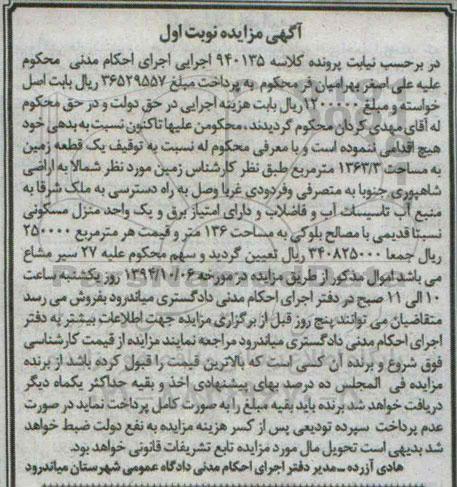 آگهی مزایده نوبت اول
در برحسب نیابت پرونده کلاسه ۹۴۰۱۳۵ اجرایی اجرای احکام مدنی محکوم
علیه علی اصغر بهرامیان فر محکوم به پرداخت مبلغ ۳۶۵۲۹۵۵۷ ریال بابت اصل
خواسته و مبلغ ۱۲۰۰۰۰۰ ریال بابت هزینه اجرایی در حق دولت و در حق محکوم
له آقای مهدی گردان محکوم گردیدند، محکومن علیها تاکنون نسبت به بدهی خود
هیچ اقدامی ننموده است و با معرفی محکوم له نسبت به توقیف یک قطعه زمین
به مساحت ۱۳۶۳/۳ مترمربع طبق نظر کارشناس زمین مورد نظر شمالا به اراضی
شاهپوری جنوبا به متصرفی وفردودی غربا وصل به راه دسترسی به ملک شرقا به
منبع آب تاسیسات آب و فاضلاب و دارای امتیاز برق و یک واحد منزل مسکونی
نسبتا قدیمی با مصالح بلوکی به مساحت ۱۳۶ متر و قیمت هر مترمربع ۲۵۰۰۰۰
ریال جمعا ۳۴۰۸۲۵۰۰۰ ریال تعیین گردید و سهم محکوم علیه ۲۷ سیر مشاع
می باشد اموال مذکور از طریق مزایده در مورخه ۱۳۹۴/۱۰/۰۶ روز یکشنبه ساعت
۱۰ الی ۱۱ صبح در دفتر اجرای احکام مدنی دادگستری میاندرود بفروش می رسد
متقاضیان می توانند پنج روز قبل از برگزاری مزایده جهت اطلاعات بیشتر به دفتر
اجرای احکام مدنی دادگستری میاندرود مراجعه نمایند مزایده از قیمت کارشناسی
فوق شروع و برنده آن کسی است که بالاترین قیمت را قبول کرده باشد از برنده
مزایده فی المجلس ده درصد بهای پیشنهادی اخذ و بقیه حداکثر یکماه دیگر
دریافت خواهد شد برنده باید بقیه مبلغ را به صورت کامل پرداخت نماید در صورت
عدم پرداخت سپرده تودیعی پس از کسر هزینه مزایده به نفع دولت ضبط خواهد
شد بدیهی است تحویل مال مورد مزایده تابع تشریفات قانونی خواهد بود.
هادی آزرده ـ مدیر دفتر اجرای احکام مدنی دادگاه عمومی شهرستان میاندرود